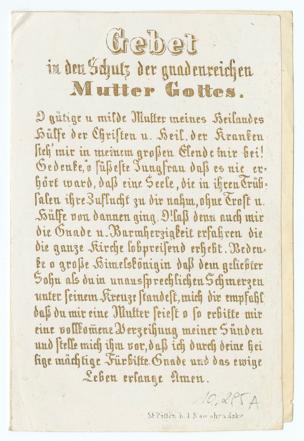 Gebet
in den Schutz der gnadenreichen
Mutter Gottes.
O gütige u milde Mutter meines Heilandes
Hülfe der Christen u. Heil, der Kranken
steh' mir in meinem großen Elende mir bei!
Gedenke, o süßeste Jungfrau daß es nie er-
hört ward, daß eine Seele, die in ihren Trüb-
salen ihre Zuflucht zu dir nahm, ohne Trost u.
Hülfe von dannen ging. O! laß denn auch mir
die Gnade u. Barmherzigkeit erfahren die
die ganze Kirche lobpreisend erhebt. Beden-
ke o große Himelskönigin daß dein geliebter
Sohn als du in unaussprechlichen Schmerzen
unter seinem Kreuze standest, mich dir empfahl
daß du mir eine Mutter seiest o so erbitte mir
eine vollkom̄ene Verzeihung meiner Sünden
und stelle mich ihm vor, daß ich durch deine hei
lige mächtige Fürbitte Gnade und das ewige
Leben erlange Amen.
10,295 A
St Pölten b. J.